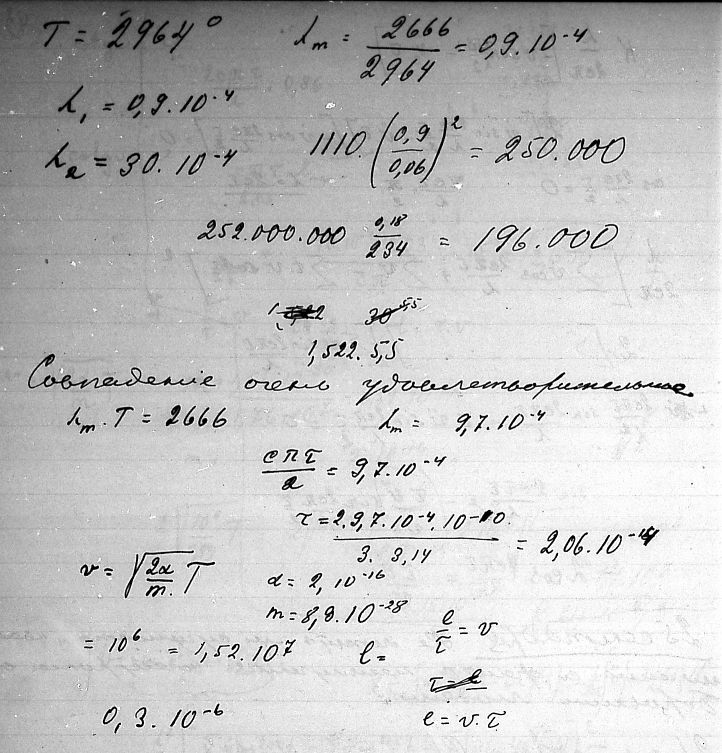 T = 2964° λm = 2666/2964 = 0,9.10⁻⁴
λ₁ = 0,9.10⁻⁴
λ₂ = 30.10⁻⁴ 1110.(0,9/0,06)² = 250.000
252.000.000 0,18/234 = 196.000
5,5
1,522.5,5
Совпаденіе очень удовлетворительное
λm.T = 2666 λm = 9,7.10⁻⁴
cπτ/2 = 9,7.10⁻⁴
τ = 2.9,7.10⁻⁴.10⁻¹⁰/3. 3,14 = 2,06.10⁻¹⁴
v = √(2α/m.) T α = 2, 10⁻¹⁶
m = 8,9.10⁻²⁸ l/τ = v
= 10⁶ = 1,52.10⁷ l =
τ = l
0,3.10⁻⁶ l = v.τ